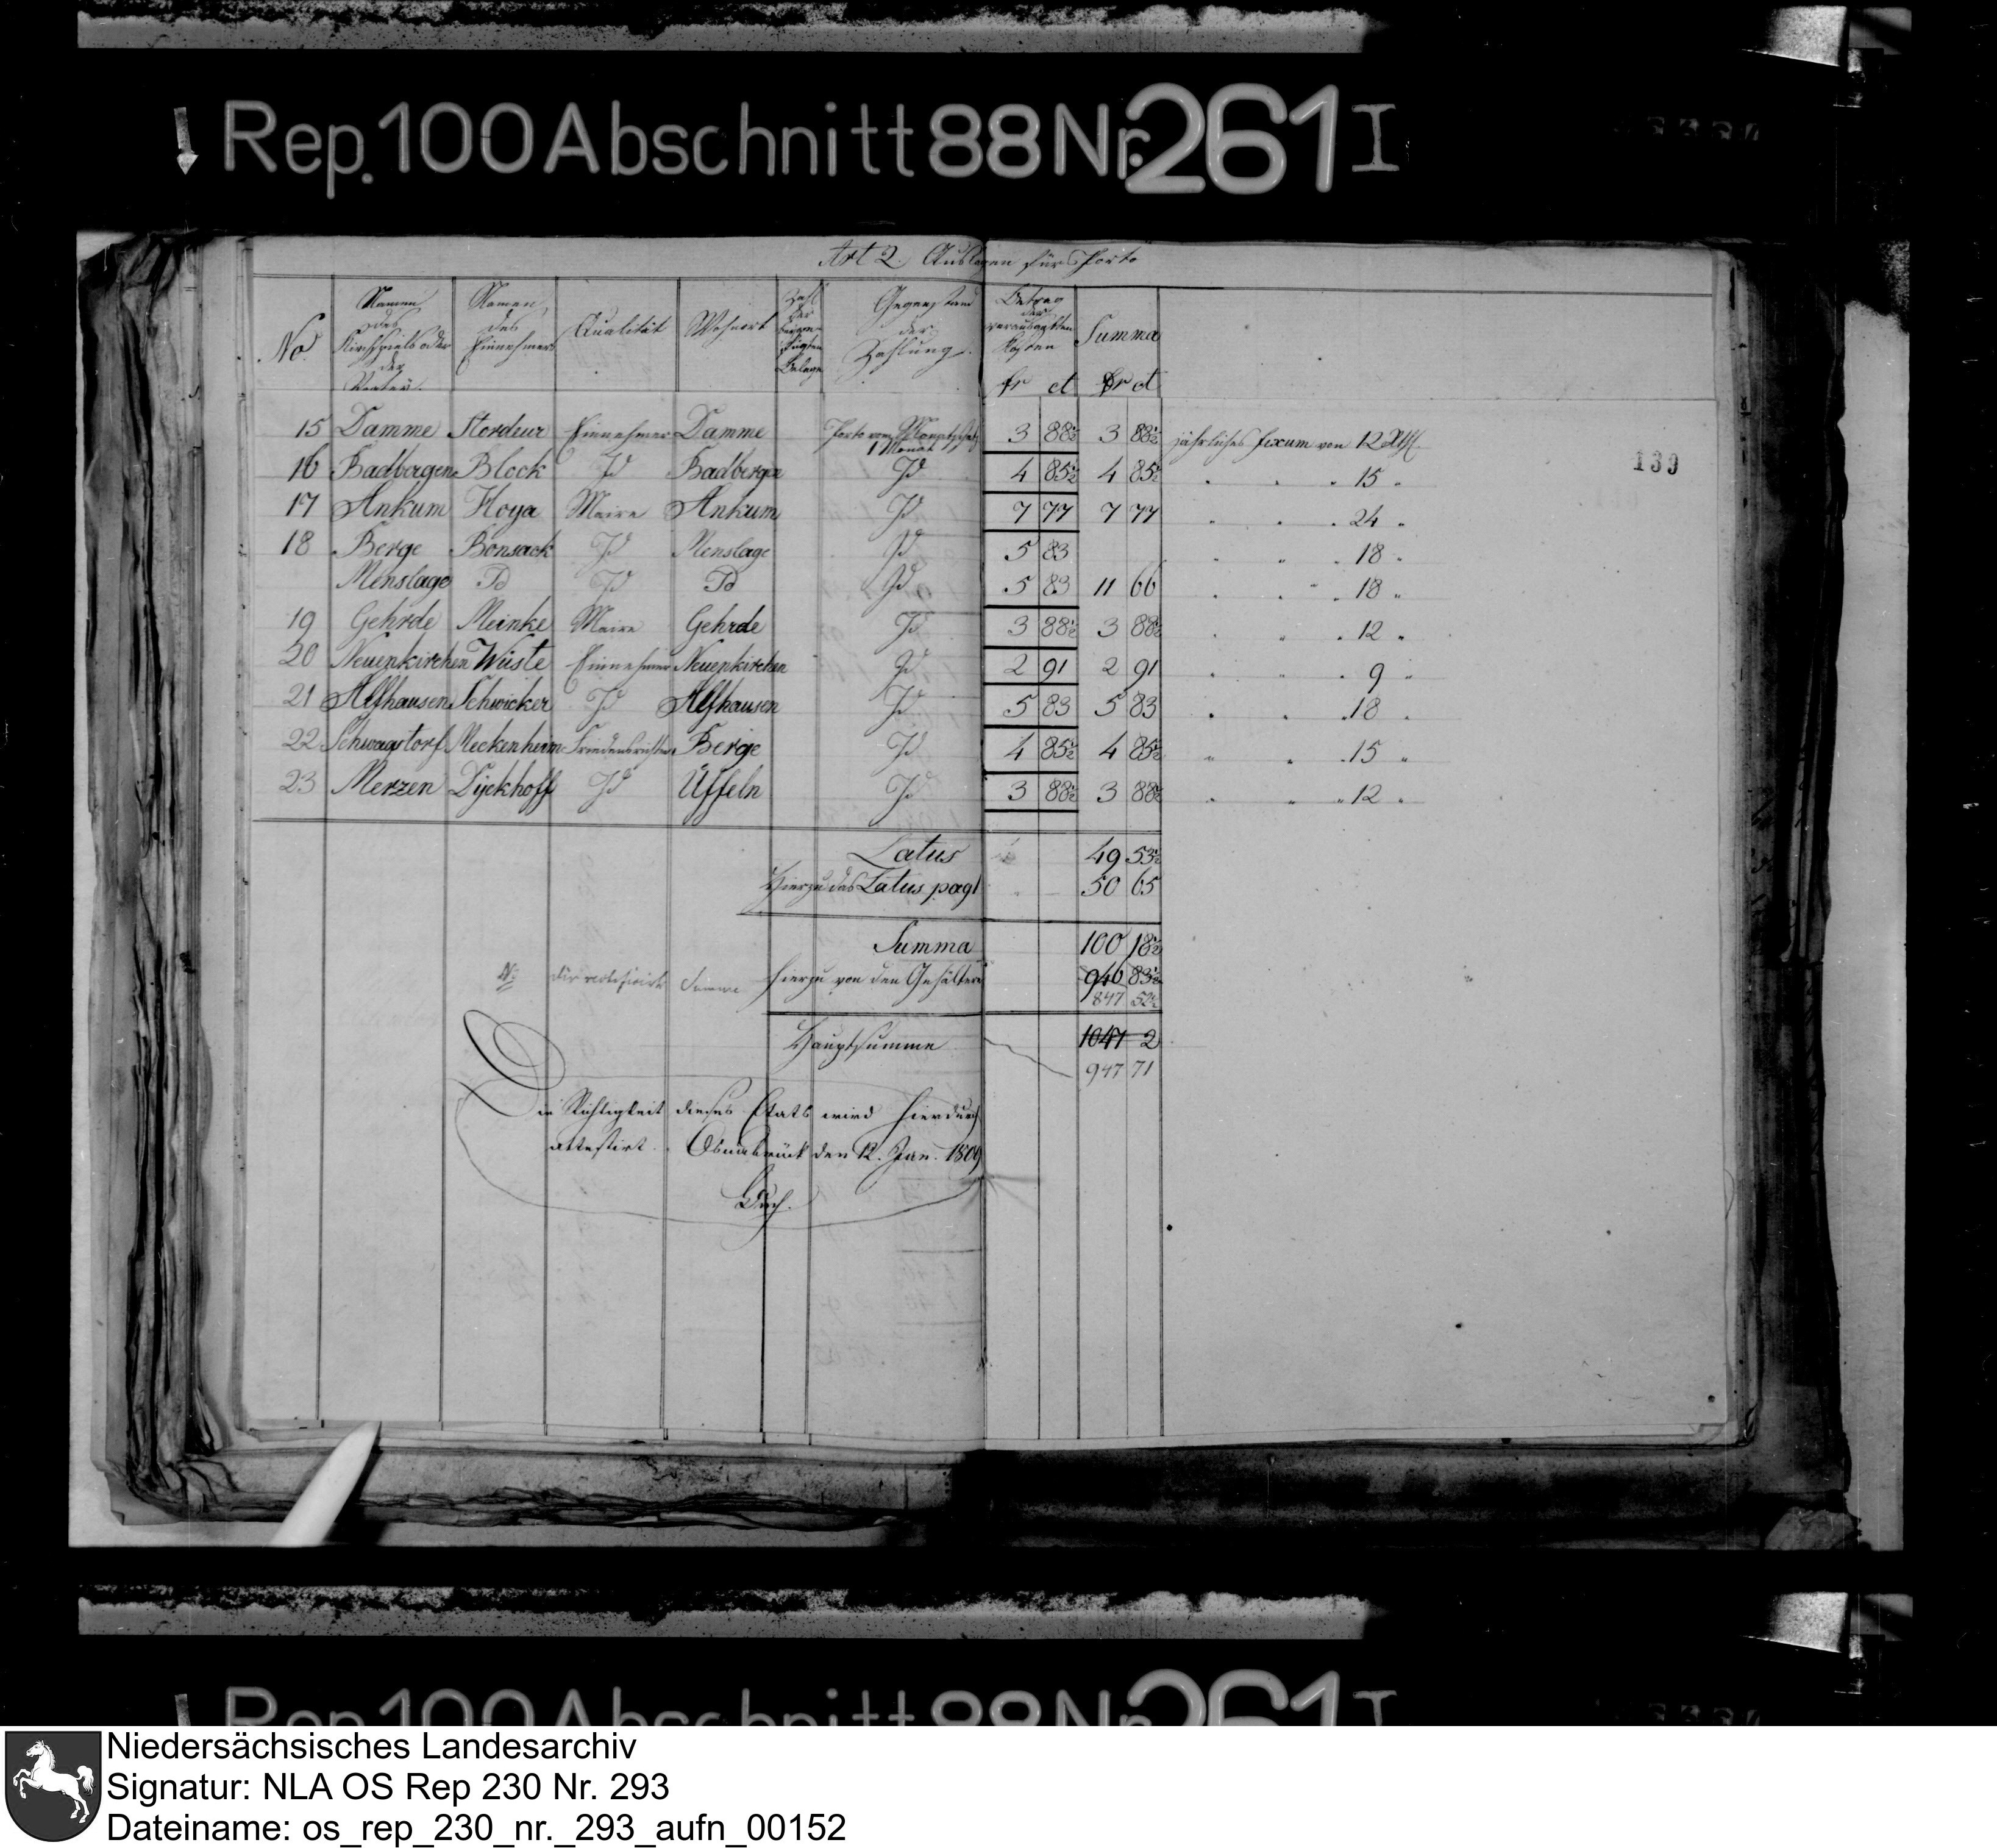 Rep. 100 Abschnitt 88 Nr. 261 I
Art 2. Auslagen für Porto
No. Namen des Kirchspiels oder der Vogtei. Namen des Einnehmers Qualität Wohnort Zahl der beigefügten Belege Gegenstand der Zahlung. Betrag der verauslagten Kosten fr ct Summa fr ct
139
15 Damme Stordeur Einnehmer Damme Porto vom 1 Monat 3 88½ 3 88½ jährliches fixum von 12
16 Badbergen Block Id Badbergen Id 4 85½ 4 85½ " " " 15 "
17 Ankum Hoya Maire Ankum Id 7 77 7 77 " " " 24 "
18 Berge Bonsack Id Menslage Id 5 83 " " " 18 "
Menslage Id Id Id Id 5 83 11 66 " " " 18 "
19 Gehrde Meinke Maire Gehrde Id 3 88½ 3 88½ " " " 12 "
20 Neuenkirchen Wüste Einnehmer Neuenkirchen Id 2 91 2 91 " " " 9 "
21 Alfhausen Schwicker Id Alfhausen Id 5 83 5 83 " " " 18 "
22 Schwagstorf Meckenheim Friedensrichter Berge Id 4 85½ 4 85½ " " " 15 "
23 Merzen Dyckhoff Id Üffeln Id 3 88½ 3 88½ " " " 12 "
Latus 49 53½
Hierzu das Latus pag 1 50 65
Summa 100 18½
Hierzu von den Gehältern 946 83½
847 52½
Hauptsumme 1047 2
947 71
Die Richtigkeit dieses Etats wird hierdurch
attestirt. Osnabrück den 12. Jan. 1809
Rep. 100 Abschnitt 88 Nr. 261 I
Niedersächsisches Landesarchiv
Signatur: NLA OS Rep 230 Nr. 293
Dateiname: os_rep_230_nr._293_aufn_00152